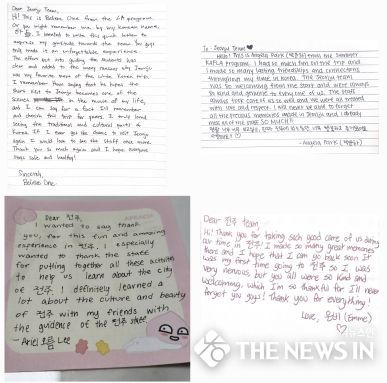 Dear Jeonju Team,
Hi! This is Belise One from the LA programs
Or you might remember me by my Korean name,
I wanted to write this quick letter to
express my gratitude towards the
made it an unforgettable experience!
The effort put into guiding the students was
clear and added to the many reasons why Jeonju
was my favorite part of the whole Korea trip.
I remember them saying that he hopes the
short visit to Jeonju becomes one of the
scenes in the movie of my life,
and I can say for a fact it will remember
and cherish this trip for years. I truly loved
seeing the traditional and cultural parts of
Korea. If I ever get the chance to visit Jeonju
again I would love to see the staff once more.
Thank you so much again and I hope everyone
stays safe and healthy!
Sincerely,
Belise One.
To - Jeonju Team
Hello! This is Angela Park from the Summer
KAFLA Programs. I had so much fun on the trip and
I made so many lasting friendships and connections
throughout my time in Korea. The Jeonju team
was so welcoming from the start and were always
so kind and genuine to every one of us. The staff
always took care of us so well and we were all treated
with love and respect. I will never be able to forget
all the precious memories made in Jeonju and I already
miss all of the staff SO MUCH!!
- Angela Park
Dear 전주,
I wanted to say thank
you, for this fun and amazing
experience in 전주. I especially
wanted to thank the staff
for putting together all these activities
to help us learn about the city
of 전주! I definitely learned a
lot about the culture and beauty
of 전주 with my friends with
the guidence of the 전주 staff.
- Ariel 오름 Lee
APEACH
Dear 전주 team,
Hi! Thank you for taking such good care of us during
our time in 전주! I made so many great memories
there and I hope that I can go back soon. It
was my first time going to 전주 so I was
very nervous, but you all were so kind and
welcoming, which I'm so thankful for. I'll never
forget you guys! Thank you for everything!
Love, (Emme)
THE NEWS IN